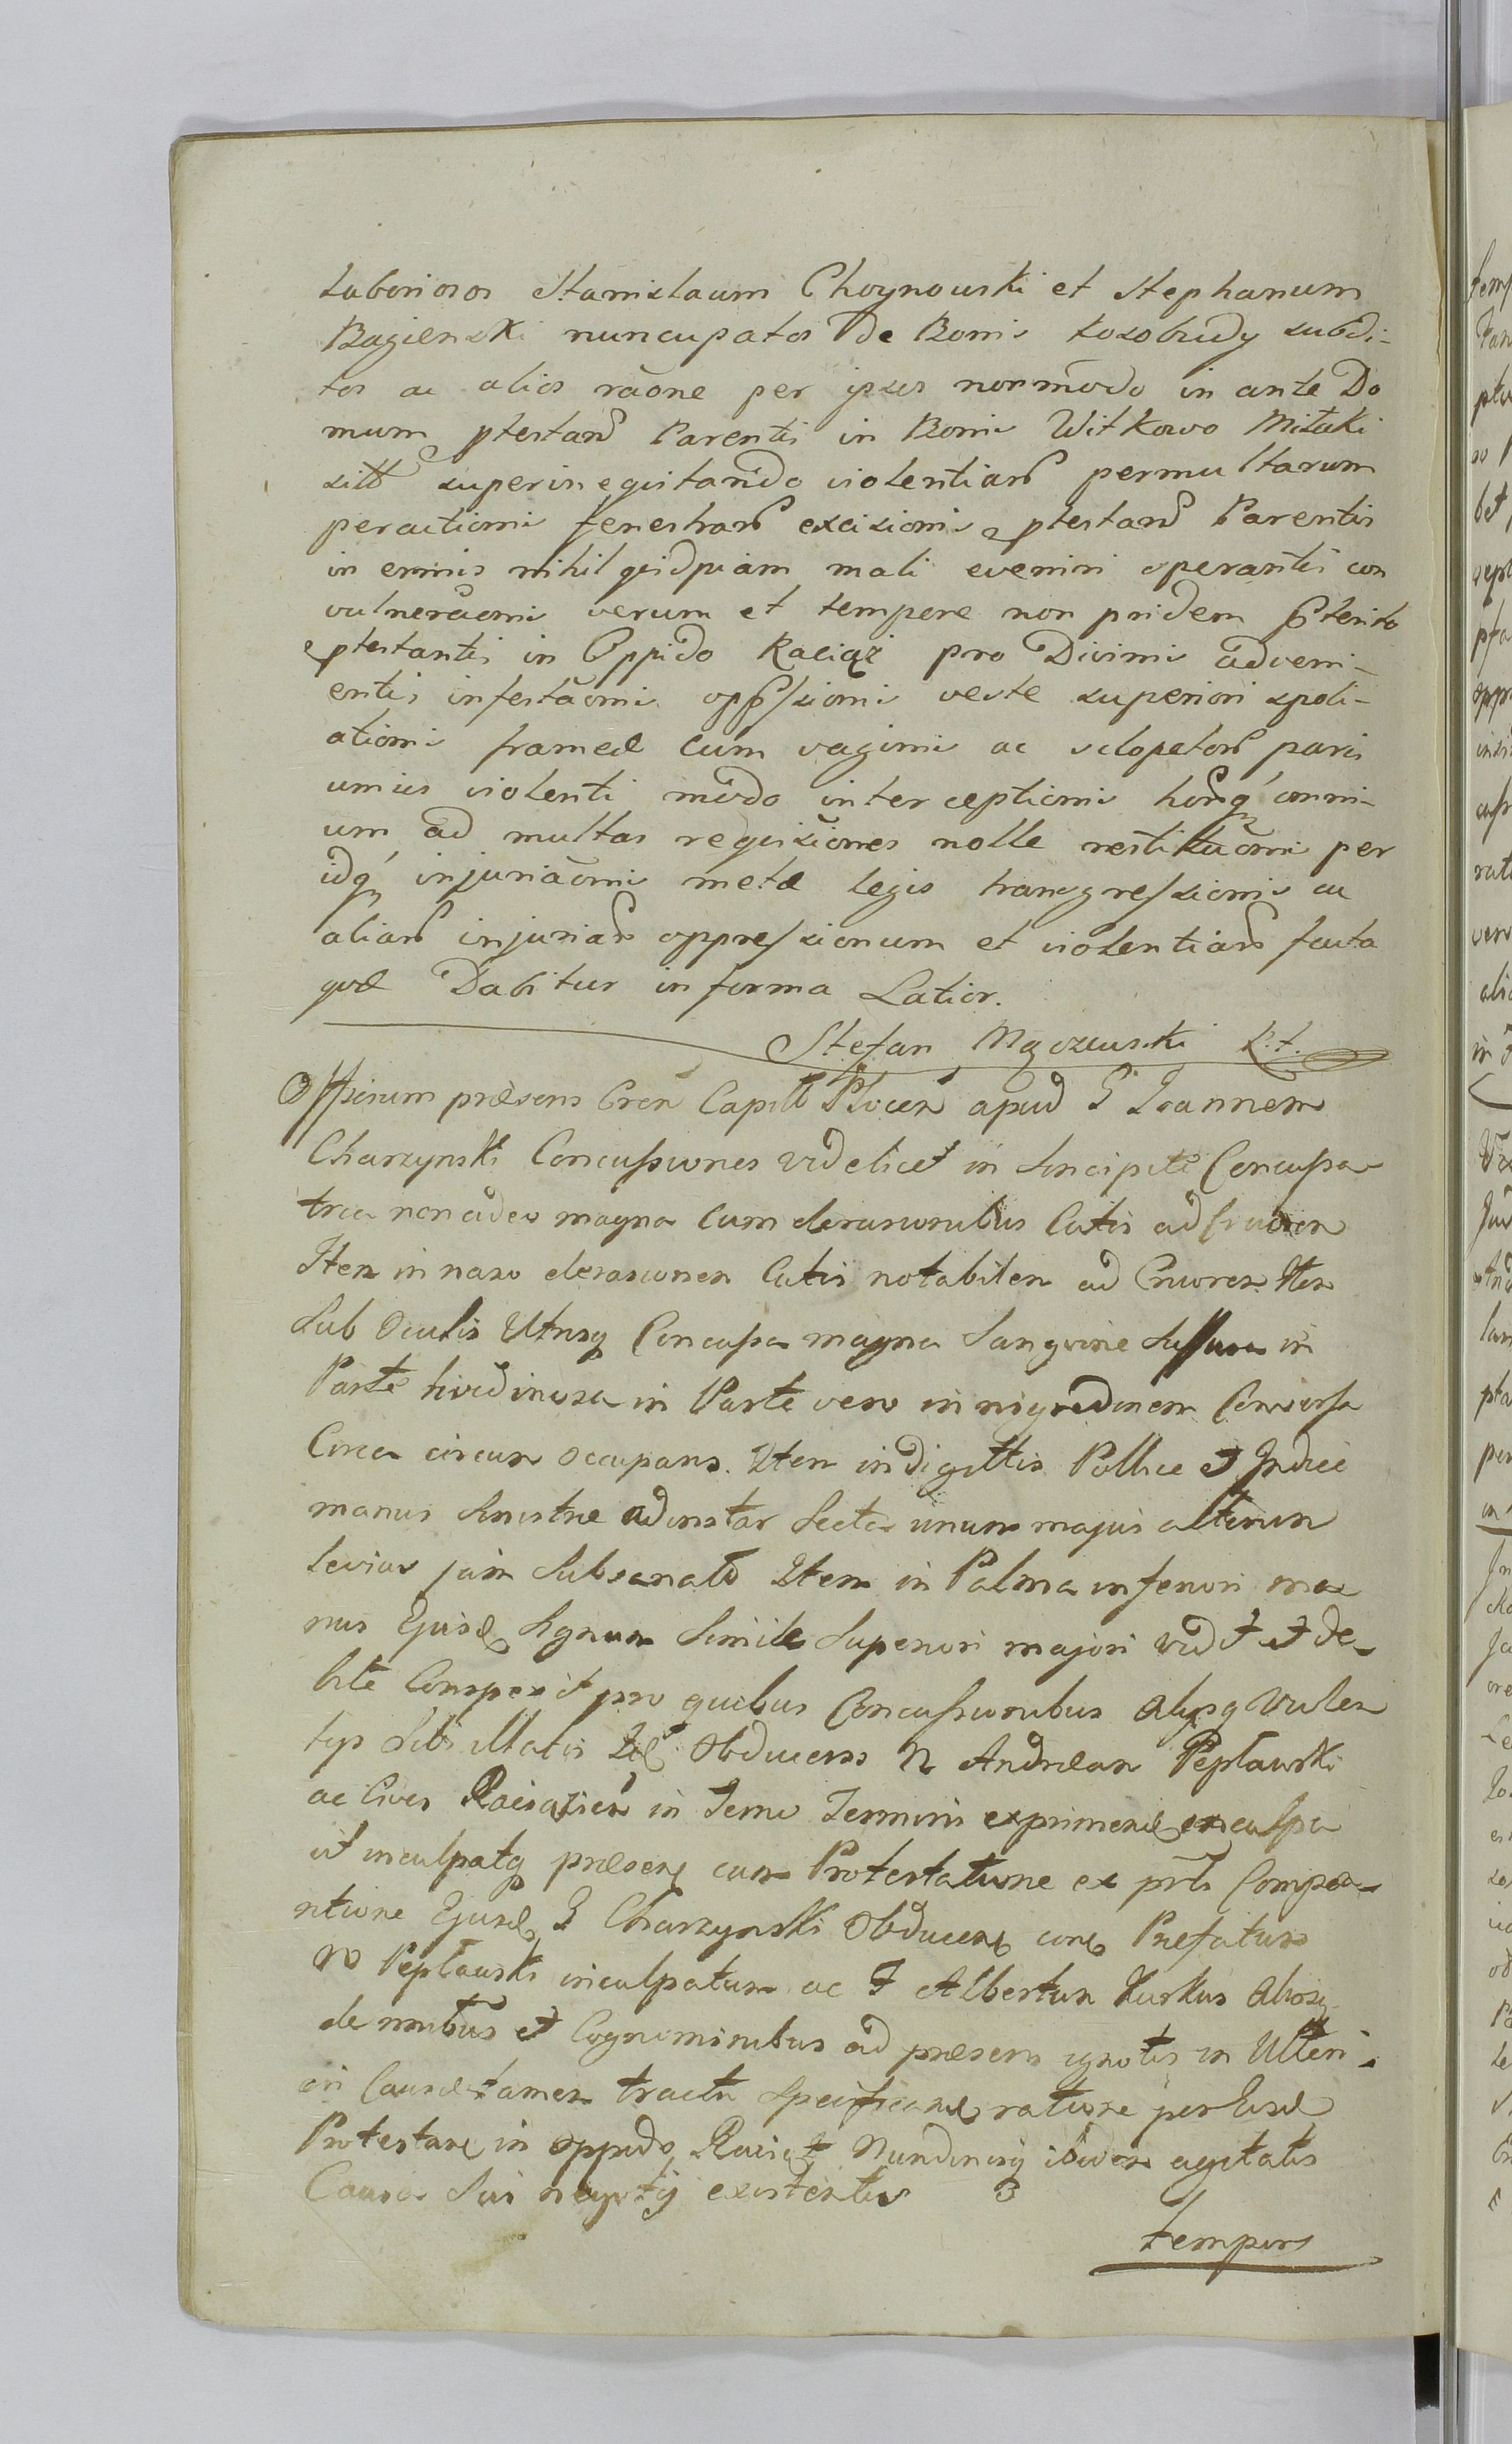 Laboriosos Stanislaum Choynowski et Stephanum
Bagienski nuncupatos de Bonis Kosobudy subdi-
tos ac alios raōne per ipsos nonmodo in ante Do
mum ptestand Parentis in Bonis Witkowo Misaki
sitt superinequitando violentiarῦ permultarum
peractionis fenestrarῦ excisionis ptestanῦ Parentis
in ermis nihil quidpiam mali eveniri operantis con
vulneraōnis verum et tempore non pridem pterito
ptestantis in Oppido Raciąż pro Divinis adveni-
entis infestaōnis oppssionis veste superiori spoli-
ationis frameæ cum vaginis ac sclopetorῦ paris
unius violenti modo interceptionis horῦq omni-
um ad multas requisiōnes nolle restituōnis per
idq injuriaōnis metæ legis transgressionis ac
aliarῦ injuriarῦ oppressionum et violentiarῦ facta
quæ Dabitur in forma Latior.
Stefan Mgowski R.t.
Officium præsens Cren Capitt Plocen apud G Joannem
Charzynski Concussiones videlicet in Sincipite Concussa
tria non adeo magna cum derasionibus Cutis ad cruorem
Item in naso derasionem Cutis notabilem ad Cruorem Item
Sub Oculis Utrisq Concussa magna Sangvine Suffusa in
Parte livedinosa in Parte vero in nigredinem Conversa
Circa circum occupans. Item in digittis Pollice et Indice
manus Sinistræ ad instar Secta unum majus alterum
levius jam Subsanato Item in Palma inferiori ma
nus Ejusd Signum Simile Superiori majori vidit et de-
bite Conspexit pro quibus Concussionibus alysq Vulne
tys Sibi illatis Id Obducens N Andream Peptawski
ac Cives Raciązien in Termi Termini exprimend inculpa
vit inculpatq præsens cum Protestatione ex pris Compa-
ritione Ejusd G Charzynski Obducens cons Prefatum
N Peptawski inculpatum ac F Albertum Kurkus aliosq
de nnibus et Cognominibus ad præsens ignotis in Ulteri
ori Causæ tamen tractu Specificand ratione per Eosd
Protestans in oppido Raciąż Nundinisq ibidem agitatis
Causa Sui negotij existentis
tempore